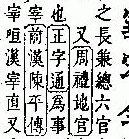 之長兼總六官
又周禮地官
也正字通為事
宰前漢陳平傳
宰咺漢宰直又